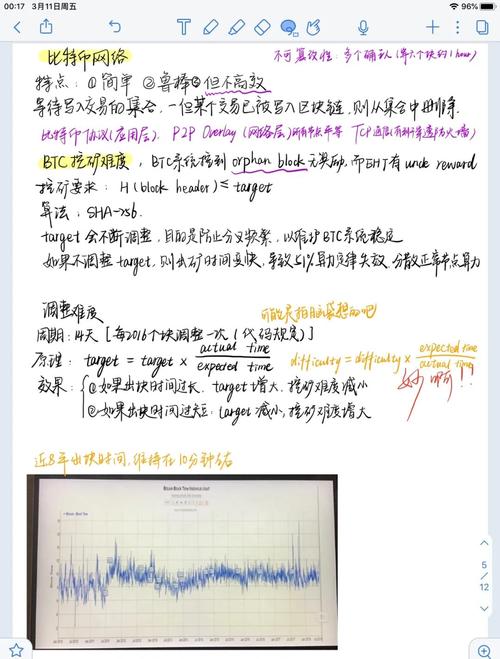 00:17 3月11日周五
96%
比特币网络
不可篡改性：多个确认（等六个块约1 hour）
特点：①简单 ②鲁棒③但不高效
等待写入交易的集合，一但某个交易已被写入区块链，则从集合中删除.
比特币协议(应用层). P2P Overlay (网络层)所有节点平等 TCP通信(有利于穿透防火墙)
BTC 挖矿难度，BTC系统挖到 orphan block无奖励，而ETH有 uncle reward
挖矿要求：H(block header)≤target
算法：SHA-256.
target 会不断调整，目的是防止分叉频繁，以维护BTC系统稳定
如果不调整target，则出矿时间变快，导致51%算力定律失效，分散正常节点算力
调整难度
可能是拍脑袋想的吧
周期：14天 [每2016个块调整一次 (代码规定)]
原理：target = target × actual time / expected time
difficulty = difficulty × expected time / actual time
妙啊！！
效果：①如果出块时间过长，target增大，挖矿难度减小
②如果出块时间过短：target减小，挖矿难度增大
近8年出块时间，维持在10分钟左右
Bitcoin Block Time historical chart
5/12